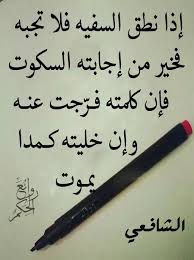 إذا نطق السفيه فلا تجبه
فخير من إجابته السكوت
فإن كلمته فرّجت عنه
وإن خليته كمدا
يموت
الشافعي